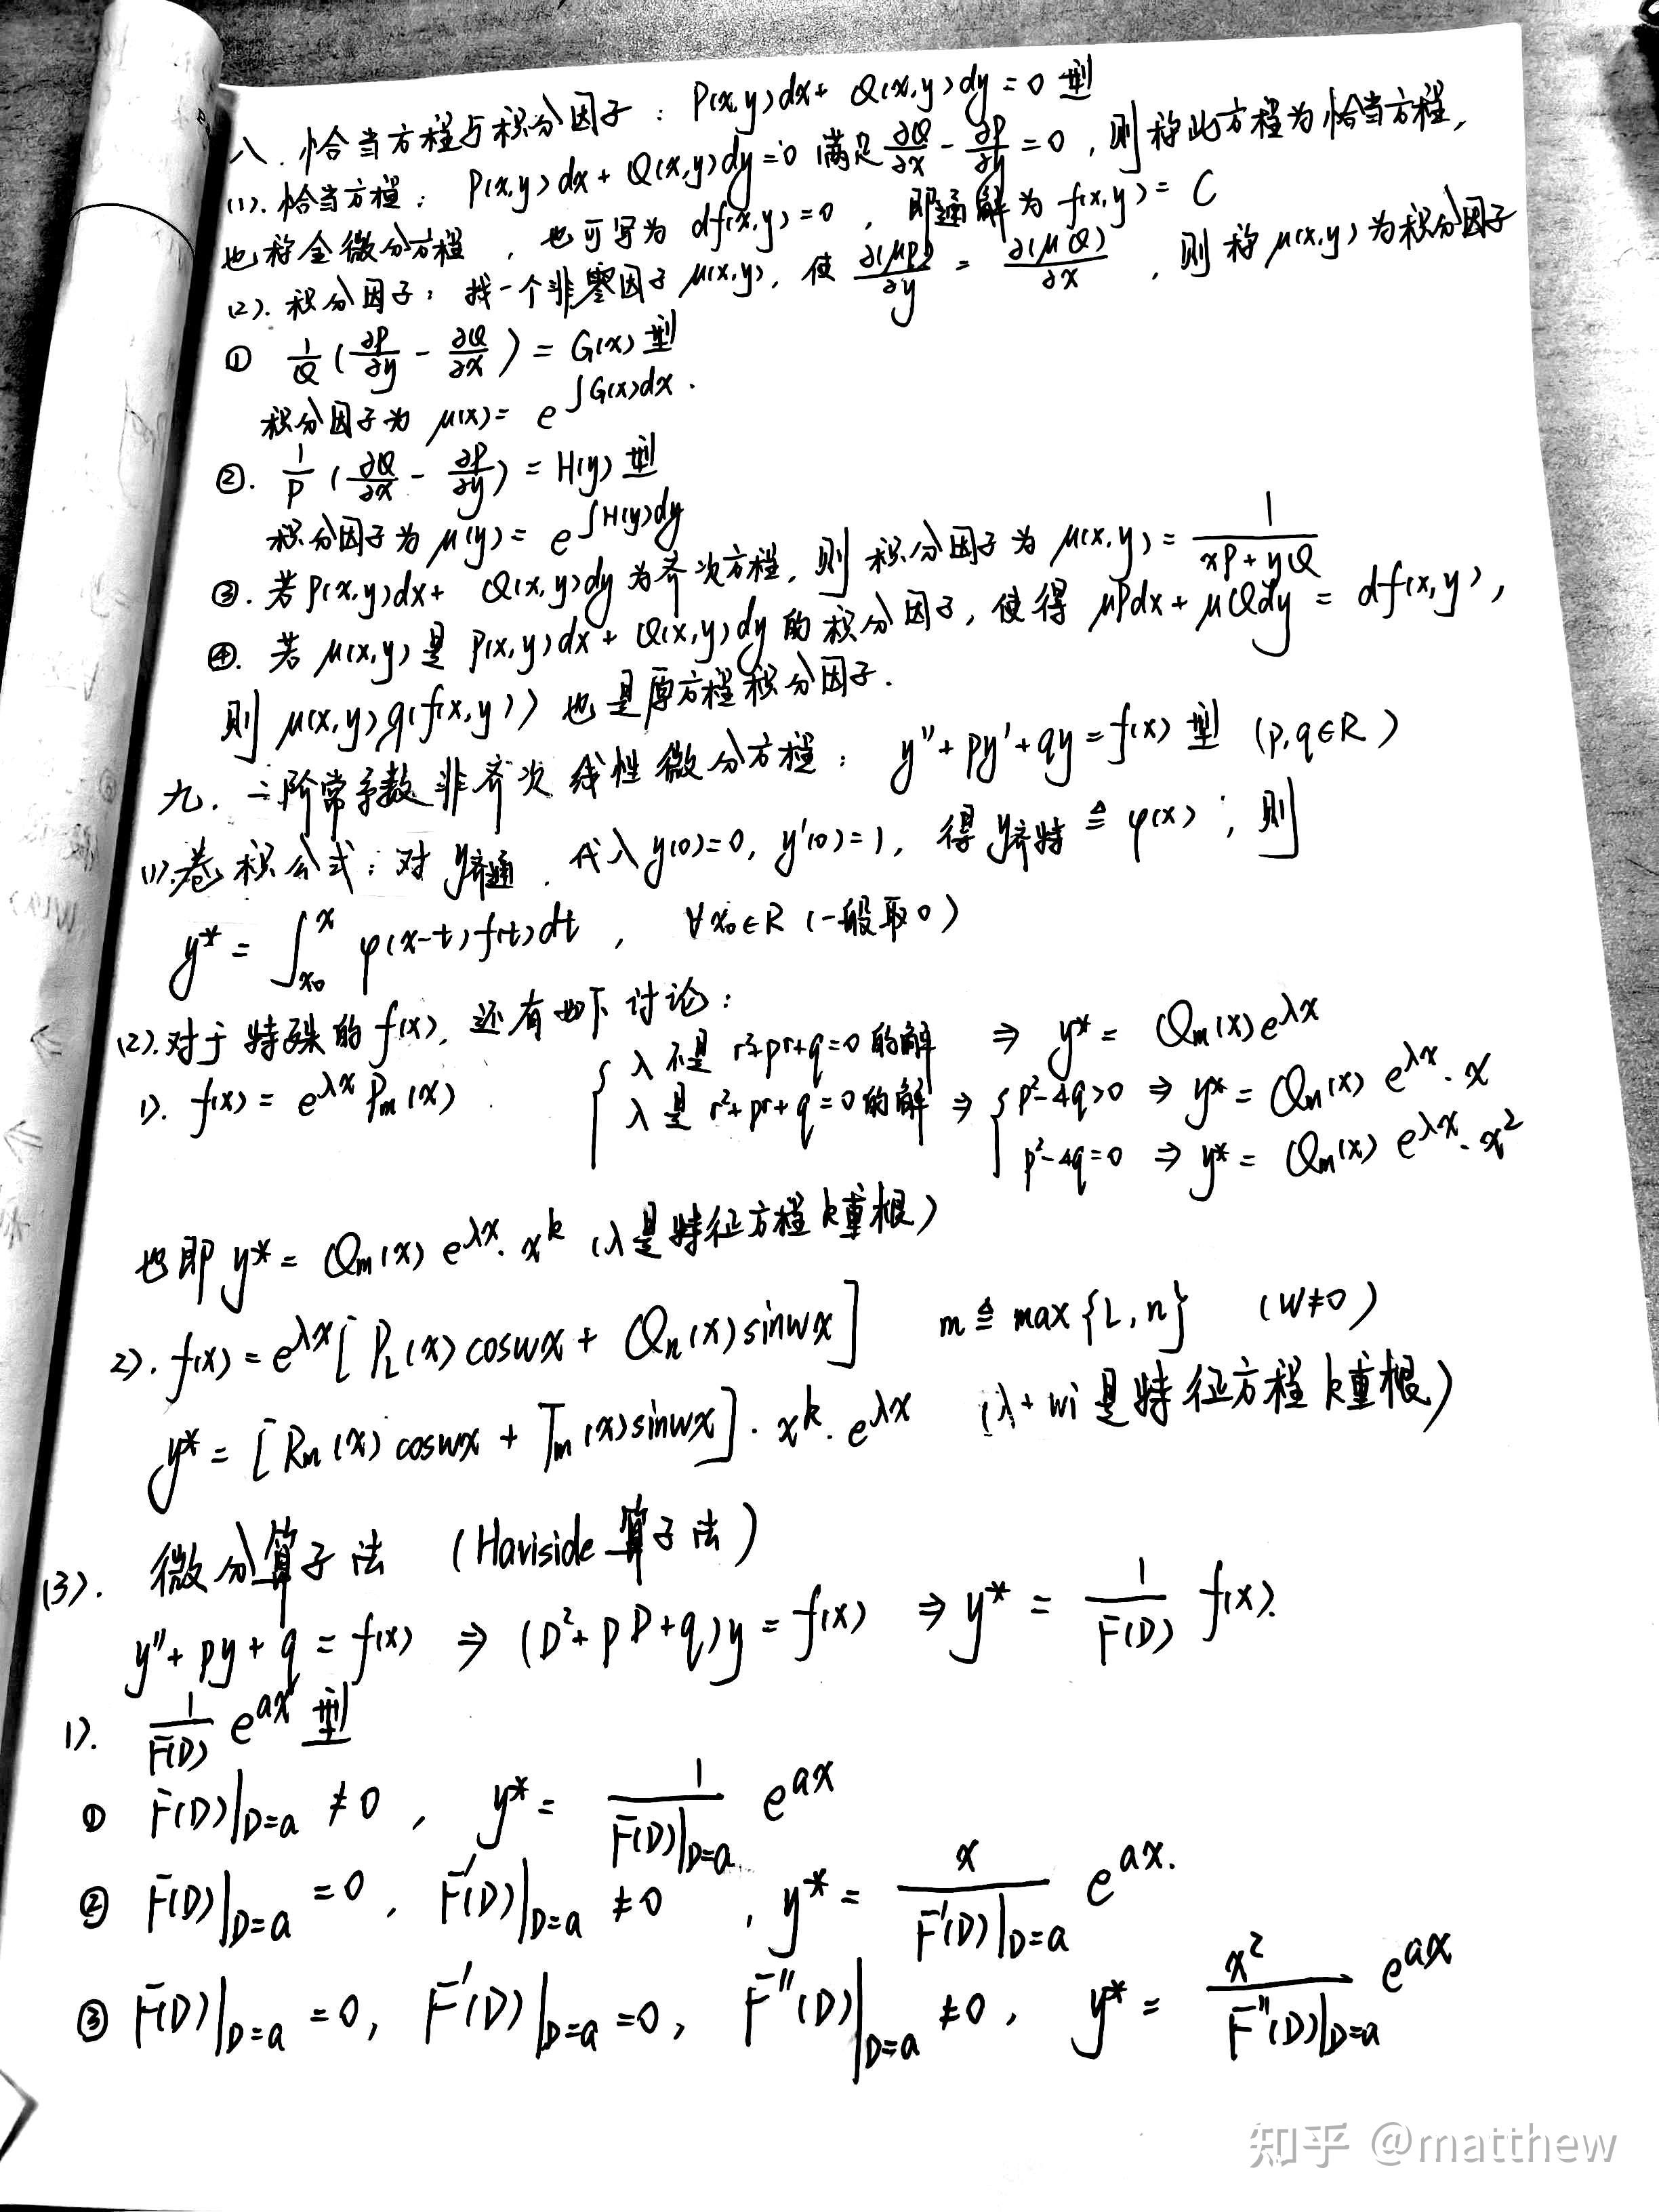 八. 恰当方程与积分因子: P(x,y)dx+ Q(x,y)dy=0 型
(1). 恰当方程: P(x,y)dx+Q(x,y)dy=0 满足 ∂Q/∂x - ∂P/∂y = 0, 则称此方程为恰当方程,
也称全微分方程, 也可写为 df(x,y)=0, 即通解为 f(x,y)= C
(2). 积分因子: 找一个非零因子 μ(x,y), 使 ∂(μP)/∂y = ∂(μQ)/∂x, 则称 μ(x,y) 为积分因子
① 1/Q (∂P/∂y - ∂Q/∂x) = G(x) 型
积分因子为 μ(x)= e^{∫G(x)dx}.
②. 1/P (∂Q/∂x - ∂P/∂y) = H(y) 型
积分因子为 μ(y)= e^{∫H(y)dy}
③. 若 P(x,y)dx+ Q(x,y)dy 为齐次方程, 则 积分因子为 μ(x,y)= 1/(xP+yQ)
④. 若 μ(x,y) 是 P(x,y)dx+Q(x,y)dy 的积分因子, 使得 μPdx+μQdy = df(x,y),
则 μ(x,y)g(f(x,y)) 也是原方程积分因子.
九. 二阶常系数非齐次线性微分方程: y''+py'+qy=f(x) 型 (p,q∈R)
(1). 卷积公式: 对 y齐通, 代入 y(0)=0, y'(0)=1, 得 y齐特 ≜ φ(x); 则
y* = ∫_{x₀}^{x} φ(x-t)f(t)dt, ∀x₀∈R (一般取0)
(2). 对于特殊的 f(x), 还有如下讨论:
1). f(x)= e^{λx} Pm(x) { λ 不是 r²+pr+q=0 的解 ⇒ y* = Qm(x)e^{λx}
λ 是 r²+pr+q=0 的解 ⇒ { p²-4q>0 ⇒ y* = Qm(x) e^{λx}·x
p²-4q=0 ⇒ y* = Qm(x) e^{λx}·x²
也即 y* = Qm(x) e^{λx}·x^k (λ是特征方程k重根)
2). f(x)= e^{λx}[PL(x)coswx+ Qn(x)sinwx] m ≜ max{L,n} (w≠0)
y* = [Rm(x)coswx + Tm(x)sinwx]·x^k·e^{λx} (λ+wi 是特征方程k重根)
(3). 微分算子法 (Haviside 算子法)
y''+py+q = f(x) ⇒ (D²+pD+q)y = f(x) ⇒ y* = 1/F(D) f(x).
1). 1/F(D) e^{ax} 型
① F(D)|D=a ≠0, y* = 1/F(D)|D=a e^{ax}
② F(D)|D=a =0, F'(D)|D=a ≠0, y* = x/F'(D)|D=a e^{ax}.
③ F(D)|D=a =0, F'(D)|D=a =0, F''(D)|D=a ≠0, y* = x²/F''(D)|D=a e^{ax}
知乎 @matthew